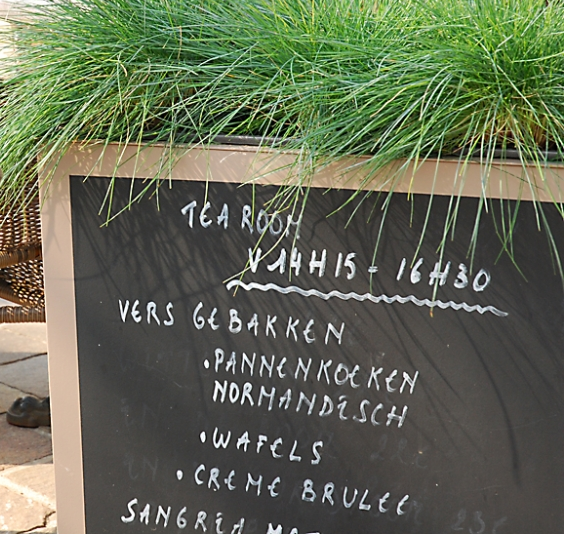 TEA ROOM
V 14H15 - 16H30
VERS GEBAKKEN
• PANNENKOEKEN
NORMANDISCH
• WAFELS
• CREME BRULEE
SANGRIA